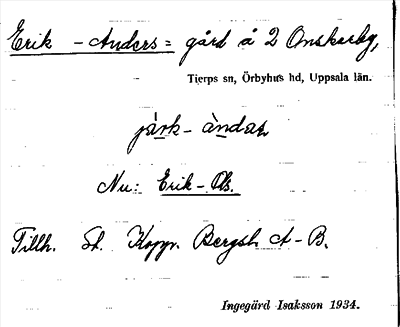 Erik - Anders = gård å 2 Onskarby,
Tierps sn, Örbyhus hd, Uppsala län.
järk - àndaṣ
Nu: Erik - Ols.
Tillh. St. Kopp. Bergsl. A - B.
Ingegärd Isaksson 1934.